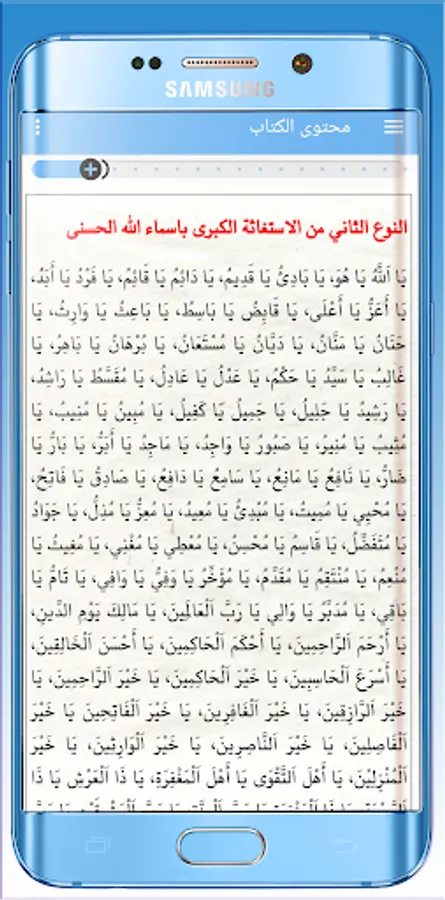 SAMSUNG
محتوى الكتاب
النوع الثاني من الاستغاثة الكبرى باسماء الله الحسنى
يَا اَللَّهُ يَا هُوَ، يَا بَادِئُ يَا قَدِيمُ، يَا دَائِمُ يَا قَائِمُ، يَا فَرْدُ يَا اَبَدُ،
يَا أَعَزُّ يَا أَعْلَى، يَا قَابِضُ يَا بَاسِطُ، يَا بَاعِثُ يَا وَارِثُ، يَا
حَنَانُ يَا مَنَّانُ، يَا دَيَّانُ يَا مُسْتَعَانُ، يَا بُرْهَانُ يَا بَاهِرُ، يَا
غَالِبُ يَا سَيِّدُ يَا حَكَمُ، يَا عَدْلُ يَا عَادِلُ، يَا مُقَسِّطُ يَا رَاشِدُ،
يَا رَشِيدُ يَا جَلِيلُ، يَا جَمِيلُ يَا كَفِيلُ، يَا مُبِينُ يَا مُنِيبُ، يَا
مُثِيبُ يَا مُنِيرُ، يَا صَبُورُ يَا وَاجِدُ، يَا مَاجِدُ يَا أَبَرُّ، يَا بَارُّ يَا
ضَارُّ، يَا نَافِعُ يَا مَانِعُ، يَا سَامِعُ يَا دَافِعُ، يَا صَادِقُ يَا فَاتِحُ،
يَا مُحْيِي يَا مُمِيتُ، يَا مُبْدِئُ يَا مُعِيدُ، يَا مُعِزُّ يَا مُذِلُّ، يَا جَوَادُ
يَا مُتَفَضِّلُ، يَا قَاسِمُ يَا مُحْسِنُ، يَا مُعْطِي يَا مُغْنِي، يَا مُغِيثُ يَا
مُنْعِمُ، يَا مُنْتَقِمُ يَا مُقَدِّمُ، يَا مُؤَخِّرُ يَا وَفِيُّ يَا وَافِي، يَا تَامُّ يَا
بَاقِي، يَا مُدَبِّرُ يَا وَالِي يَا رَبَّ اَلْعَالَمِينَ، يَا مَالِكَ يَوْمِ الدِّينِ،
يَا أَرْحَمَ اَلرَّاحِمِينَ، يَا أَحْكَمَ اَلْحَاكِمِينَ، يَا أَحْسَنَ اَلْخَالِقِينَ،
يَا أَسْرَعَ اَلْحَاسِبِينَ، يَا خَيْرَ اَلْحَاكِمِينَ، يَا خَيْرَ اَلرَّاحِمِينَ، يَا
خَيْرَ اَلرَّازِقِينَ، يَا خَيْرَ اَلْغَافِرِينَ، يَا خَيْرَ اَلْفَاتِحِينَ يَا خَيْرَ
اَلْفَاصِلِينَ، يَا خَيْرَ اَلنَّاصِرِينَ، يَا خَيْرَ اَلْوَارِثِينَ، يَا خَيْرَ
اَلْمُنْزِلِينَ، يَا أَهْلَ اَلتَّقْوَى يَا أَهْلَ اَلْمَغْفِرَةِ، يَا ذَا اَلْعَرْشِ يَا ذَا